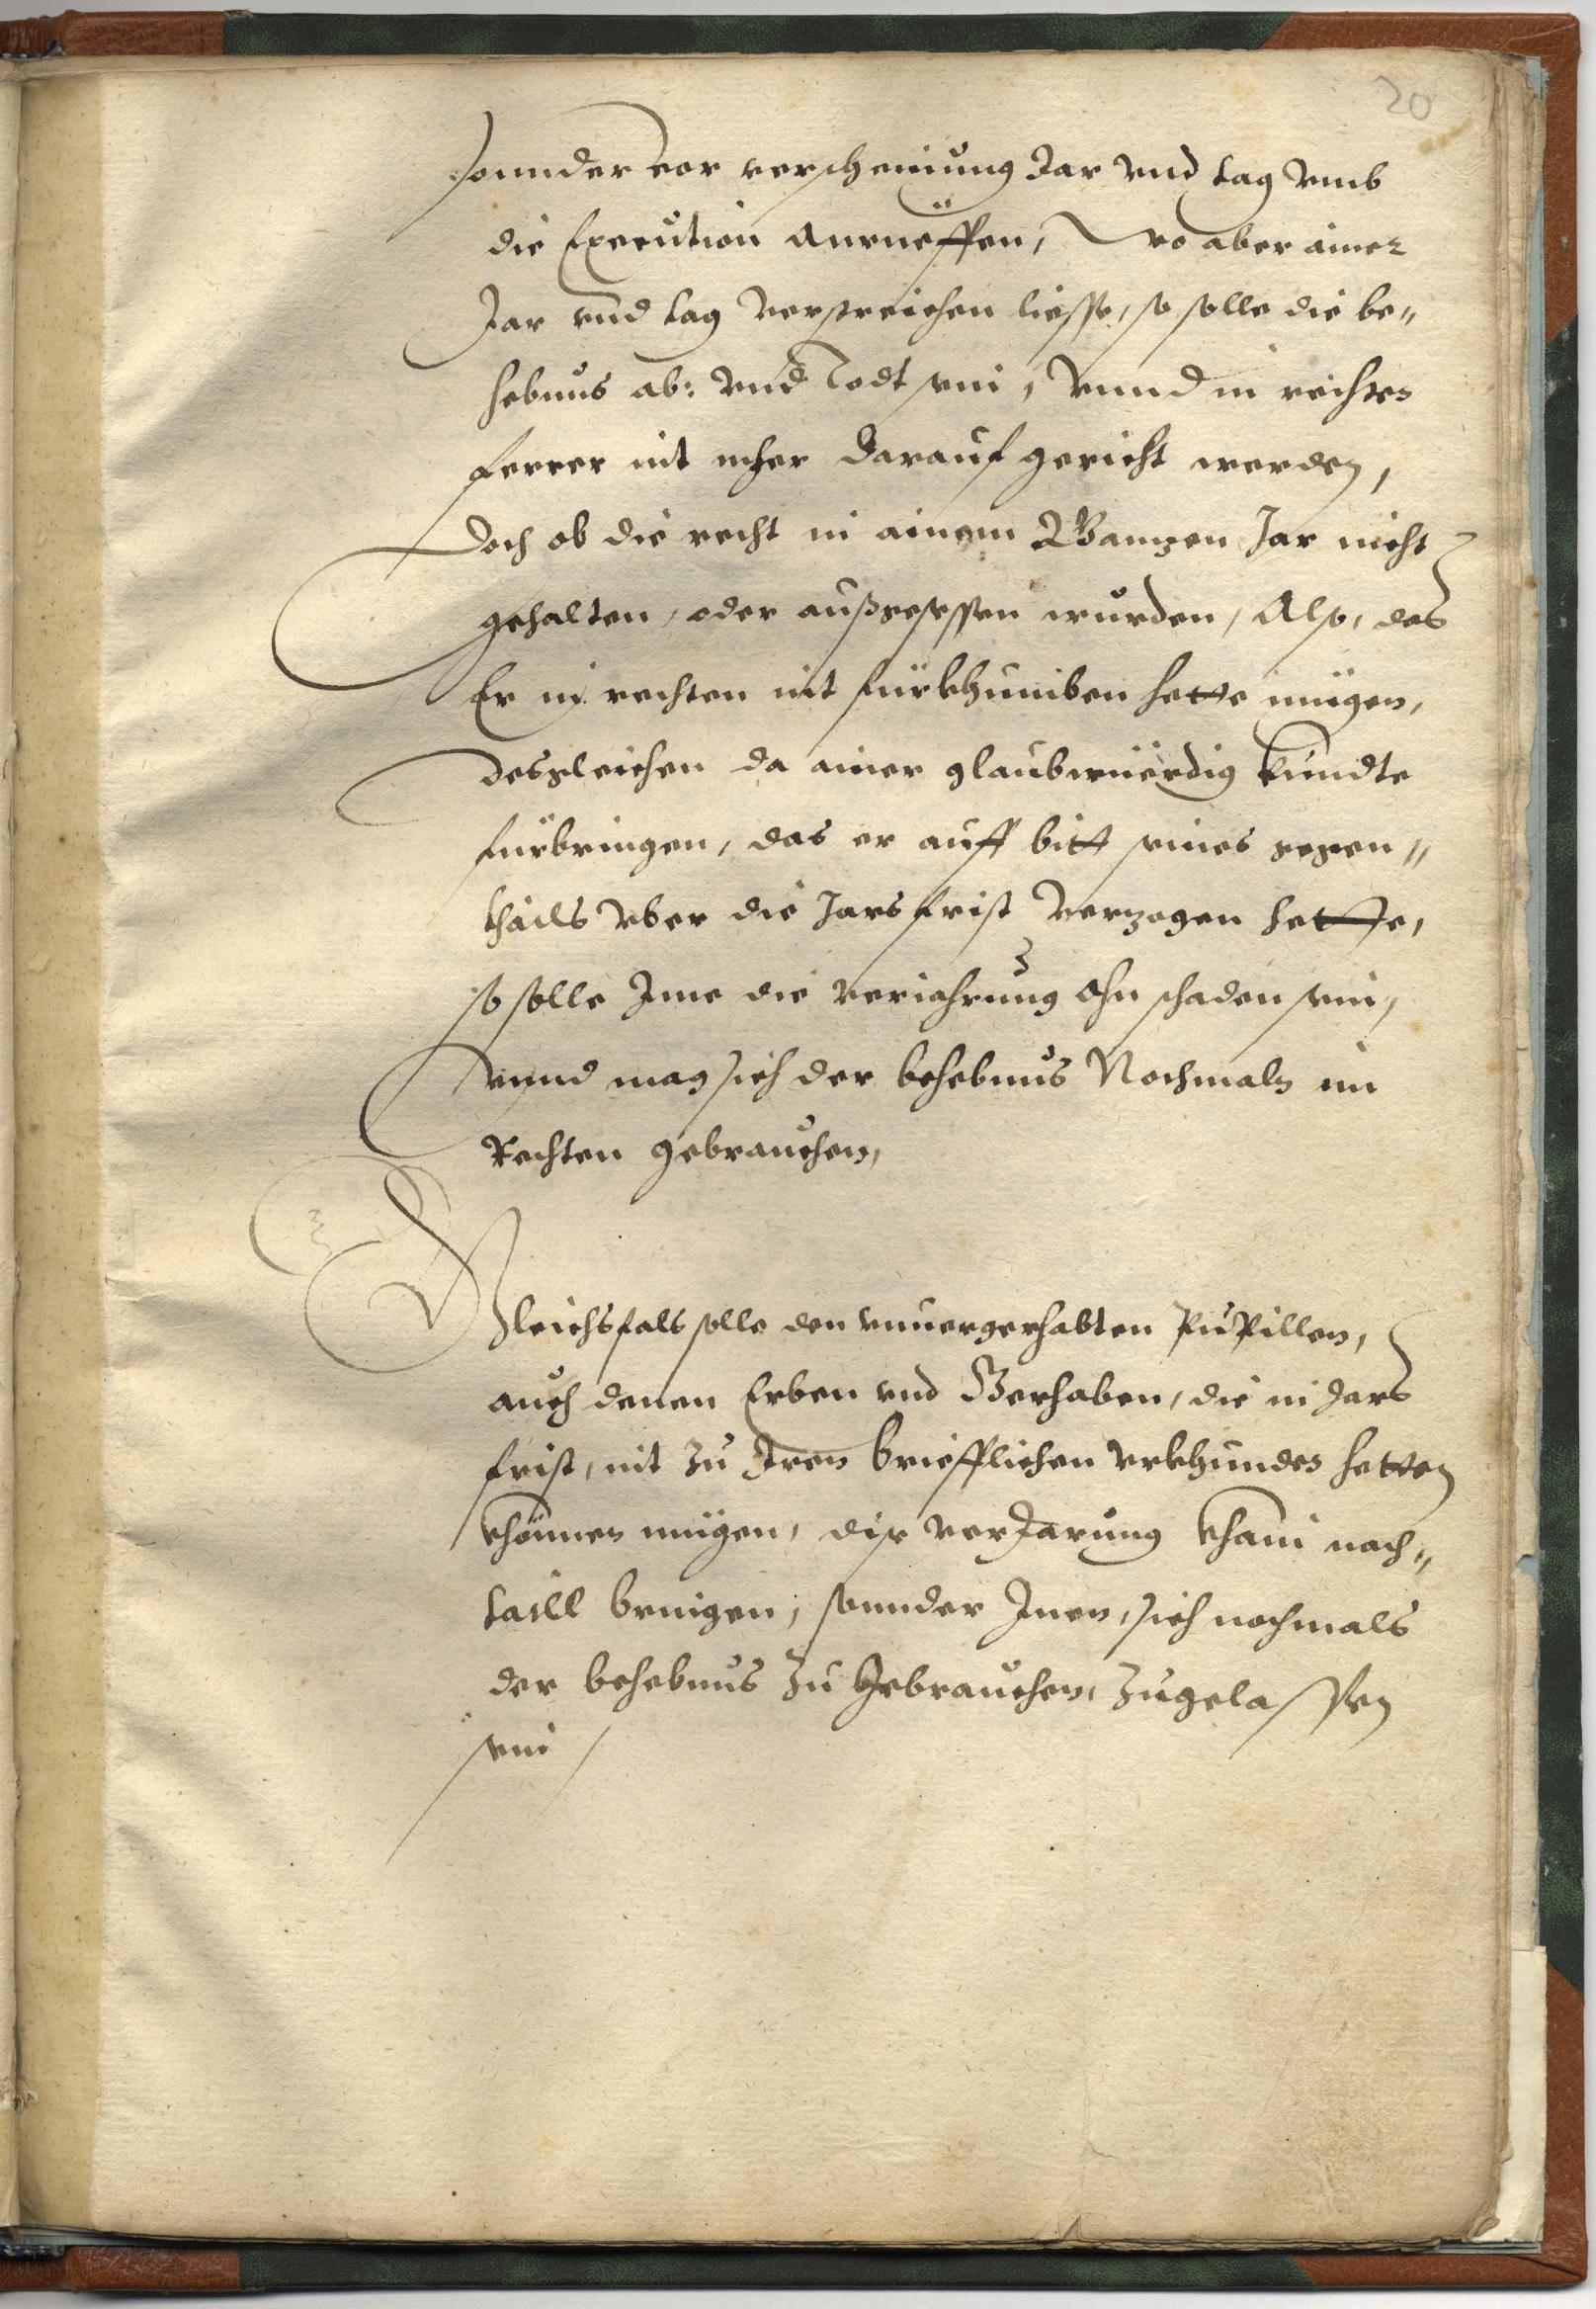 20
sonnder vor verscheinung Jar vnd tag vmb
die Execution anrueffen, wo aber ainer
Jar vnd tag verstreichen liesse, so solle die be„
hebnus ab: vnd Todt sein, vnnd in rechten
ferrer nit mher darauf gericht werden,
doch ob die recht in ainem Ganntzen Jar nicht
gehalten, oder außgesessen wurden, Also, das
Er in rechten nit fürkhumben hette mügen,
desgleichen da ainer glaubwürdig kündte
fürbringen, das er auff bitt seines gegen„
thails vber die Jarsfrist verzogen hette,
so solle Jme die veriahrung ohn schaden sein,
vnnd mag sich der behebnus Nochmals im
Rechten gebrauchen,
Gleichsfals solle den vnuergerhabten Pupillen,
auch denen Erben vnd Gerhaben, die in Jars
frist, nit zu Jren briefflichen vrkhunden hetten
khönnen mügen, dise verJarung khain nach„
taill bringen, sonnder Jnen, sich nochmals
der behebnus zu Gebrauchen, zugelassen
sein